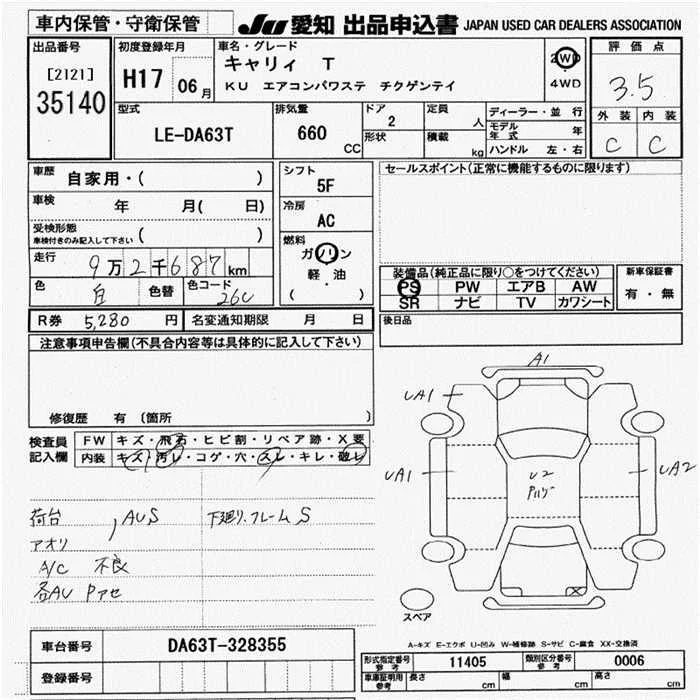 車内保管・守衛保管
JU 愛知 出品申込書 JAPAN USED CAR DEALERS ASSOCIATION
出品番号
[2121]
35140
初度登録年月
H17 06月
車名・グレード
キャリィ T
KU エアコンパワステ チクゲンテイ
2WD
4WD
評価点
3.5
外装 内装
C C
型式
LE-DA63T
排気量
660 CC
ドア
2
形状
定員
人
積載
kg
ディーラー・並行
モデル年式 年
ハンドル 左・右
車歴
自家用・( )
車検
年 月( 日)
受検形態
車検付きのみ記入して下さい ( )
走行
9万2千687km
色
白
色替
色コード
26U
シフト
5F
冷房
AC
燃料
ガソリン
軽・油
( )
セールスポイント(正常に機能するものに限ります)
装備品(純正品に限り○をつけてください)
PS PW エアB AW
SR ナビ TV カワシート
新車保証書
有・無
後日品
R券 5,280 円 名変通知期限 月 日
注意事項申告欄(不具合内容等は具体的に記入して下さい)
修復歴 有 〔箇所 〕
検査員
記入欄
FW キズ・飛石・ヒビ割・リペア跡・X要
内装 キズ・汚レ・コゲ・穴・スレ・キレ・破レ
荷台 , AUS 下廻り.フレームS
アオリ
A/C 不良
各AU Pアセ
A1
UA1
UA1
U2
Pハゲ
UA2
X
スペア
車台番号 DA63T-328355
登録番号
A-キズ E-エクボ U-凹み W-補修跡 S-サビ C-腐食 XX-交換済
形式指定番号
参考
11405
類別区分番号
参考
0006
車庫証明用
参考
長さ cm 幅 cm 高さ cm